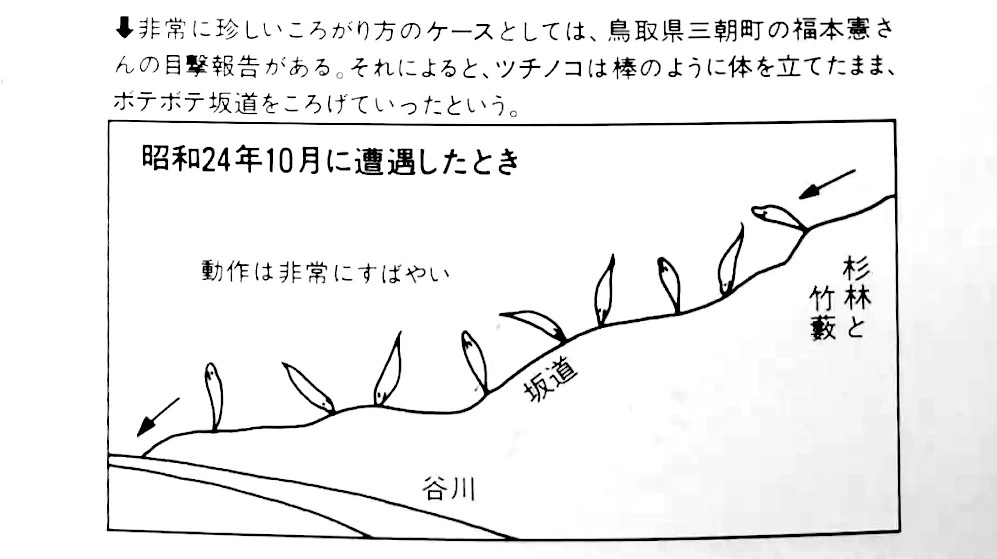 ⬇非常に珍しいころがり方のケースとしては、鳥取県三朝町の福本憲さ
んの目撃報告がある。それによると、ツチノコは棒のように体を立てたまま、
ボテボテ坂道をころげていったという。
昭和24年10月に遭遇したとき
動作は非常にすばやい
杉林と
竹藪
坂道
谷川